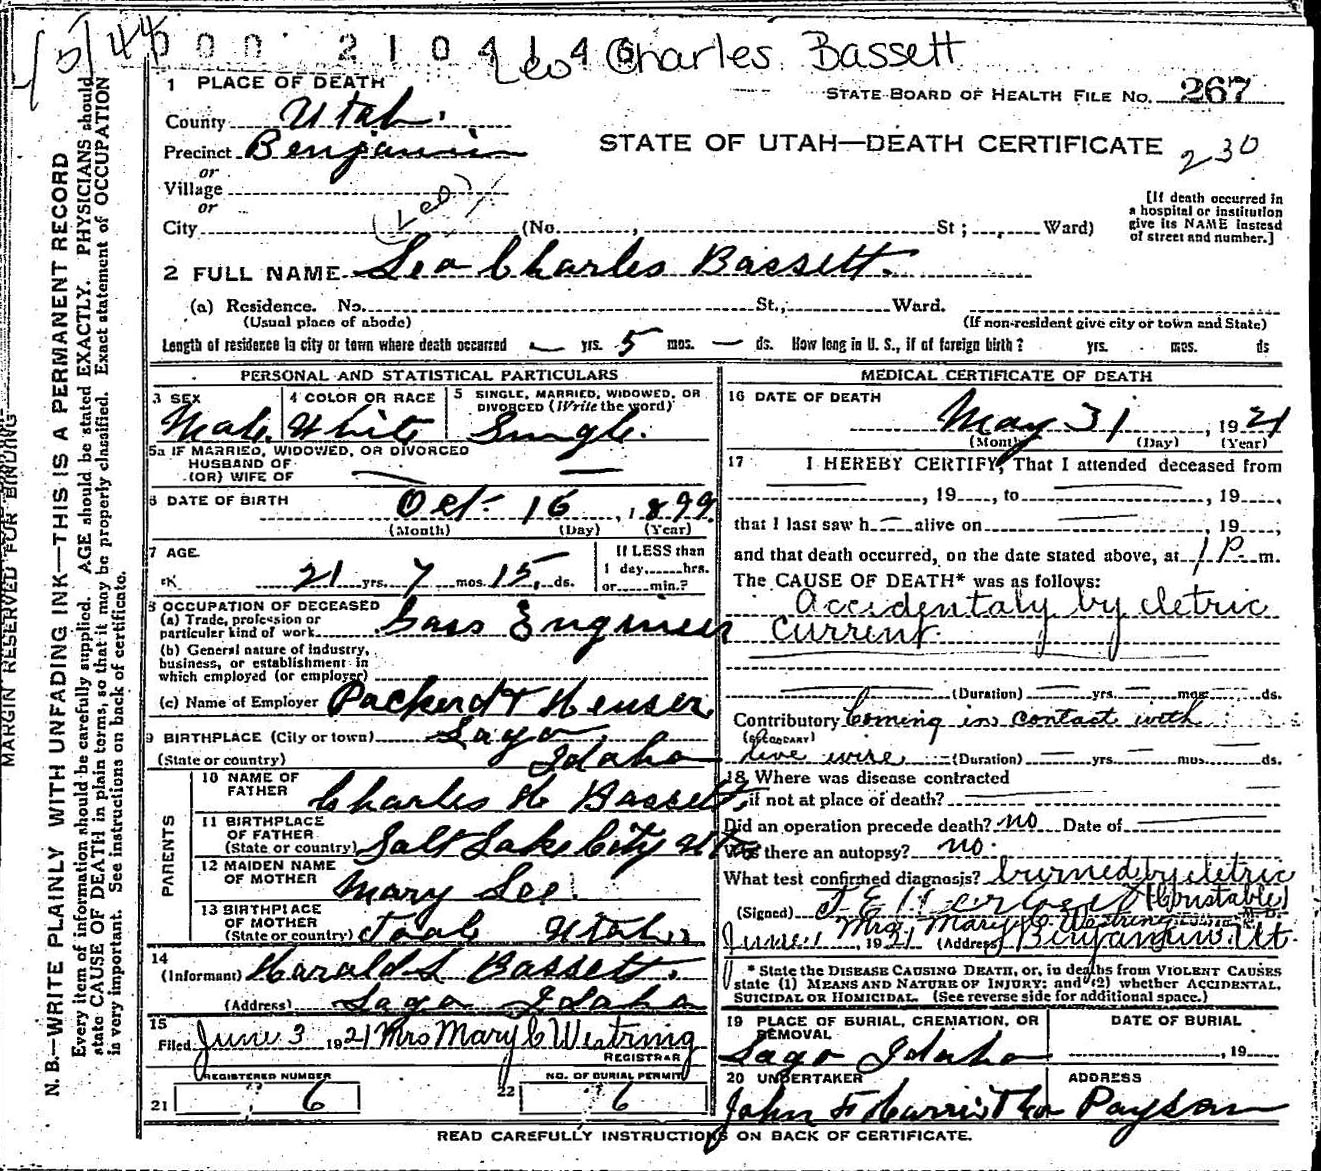 000 2104146
Leo Charles Bassett
1 PLACE OF DEATH
STATE BOARD OF HEALTH FILE NO. 267
County Utah.
STATE OF UTAH—DEATH CERTIFICATE 230
Precinct Benjamin
or
Village
or
(Leo)
City (No. , St ; , Ward)
[If death occurred in
a hospital or institution
give its NAME instead
of street and number.]
2 FULL NAME Leo Charles Bassett.
(a) Residence. No. St., Ward.
(Usual place of abode) (If non-resident give city or town and State)
Length of residence in city or town where death occurred — yrs. 5 mos. — ds. How long in U. S., if of foreign birth? yrs. mos. ds
PERSONAL AND STATISTICAL PARTICULARS
3 SEX 4 COLOR OR RACE 5 SINGLE, MARRIED, WIDOWED, OR
DIVORCED (Write the word)
Male. White Single.
5a IF MARRIED, WIDOWED, OR DIVORCED
HUSBAND OF
(OR) WIFE OF
6 DATE OF BIRTH Oct- 16, 1899
(Month) (Day) (Year)
7 AGE If LESS than
1 day, hrs.
21 yrs. 7 mos. 15 ds. or min.?
8 OCCUPATION OF DECEASED
(a) Trade, profession or
particular kind of work Gass Engineer
(b) General nature of industry,
business, or establishment in
which employed (or employer)
(c) Name of Employer
9 BIRTHPLACE (City or town) Lago,
(State or country) Idaho
PARENTS
10 NAME OF
FATHER Charles H Bassett,
11 BIRTHPLACE
OF FATHER
(State or country) Salt Lake City Uta
12 MAIDEN NAME
OF MOTHER Mary Lee.
13 BIRTHPLACE
OF MOTHER
(State or country) Toole Utah,
14
(Informant) Harald L Bassett.
(Address) Lago Idaho
15
Filed June 3 1921 Mrs Mary C Westring
REGISTRAR
REGISTERED NUMBER NO. OF BURIAL PERMIT
21 6 22 6
MEDICAL CERTIFICATE OF DEATH
16 DATE OF DEATH
May 31, 1921
(Month) (Day) (Year)
17 I HEREBY CERTIFY, That I attended deceased from
, 19 , to , 19 ,
that I last saw h alive on , 19 ,
and that death occurred, on the date stated above, at 1 P. m.
The CAUSE OF DEATH* was as follows:
Accidentaly by eletric
current.
(Duration) yrs. mos. ds.
Contributory Coming in contact with
(SECONDARY)
live wire (Duration) yrs. mos. ds.
18 Where was disease contracted
if not at place of death?
Did an operation precede death? no Date of
Was there an autopsy? no.
What test confirmed diagnosis? burned by eletric
(Signed) (Constable) M. D.
Mrs. Mary C Westring
June 1 1921 (Address) Benjamin. Ut.
* State the DISEASE CAUSING DEATH, or, in deaths from VIOLENT CAUSES
state (1) MEANS AND NATURE OF INJURY; and (2) whether ACCIDENTAL,
SUICIDAL OR HOMICIDAL. (See reverse side for additional space.)
19 PLACE OF BURIAL, CREMATION, OR
REMOVAL
DATE OF BURIAL
Lago Idaho , 19
20 UNDERTAKER ADDRESS
John F Payson
READ CAREFULLY INSTRUCTIONS ON BACK OF CERTIFICATE.
MARGIN RESERVED FOR BINDING
N. B.—WRITE PLAINLY WITH UNFADING INK—THIS IS A PERMANENT RECORD
Every item of information should be carefully supplied. AGE should be stated EXACTLY. PHYSICIANS should
state CAUSE OF DEATH in plain terms, so that it may be properly classified. Exact statement of OCCUPATION
is very important. See instructions on back of certificate.